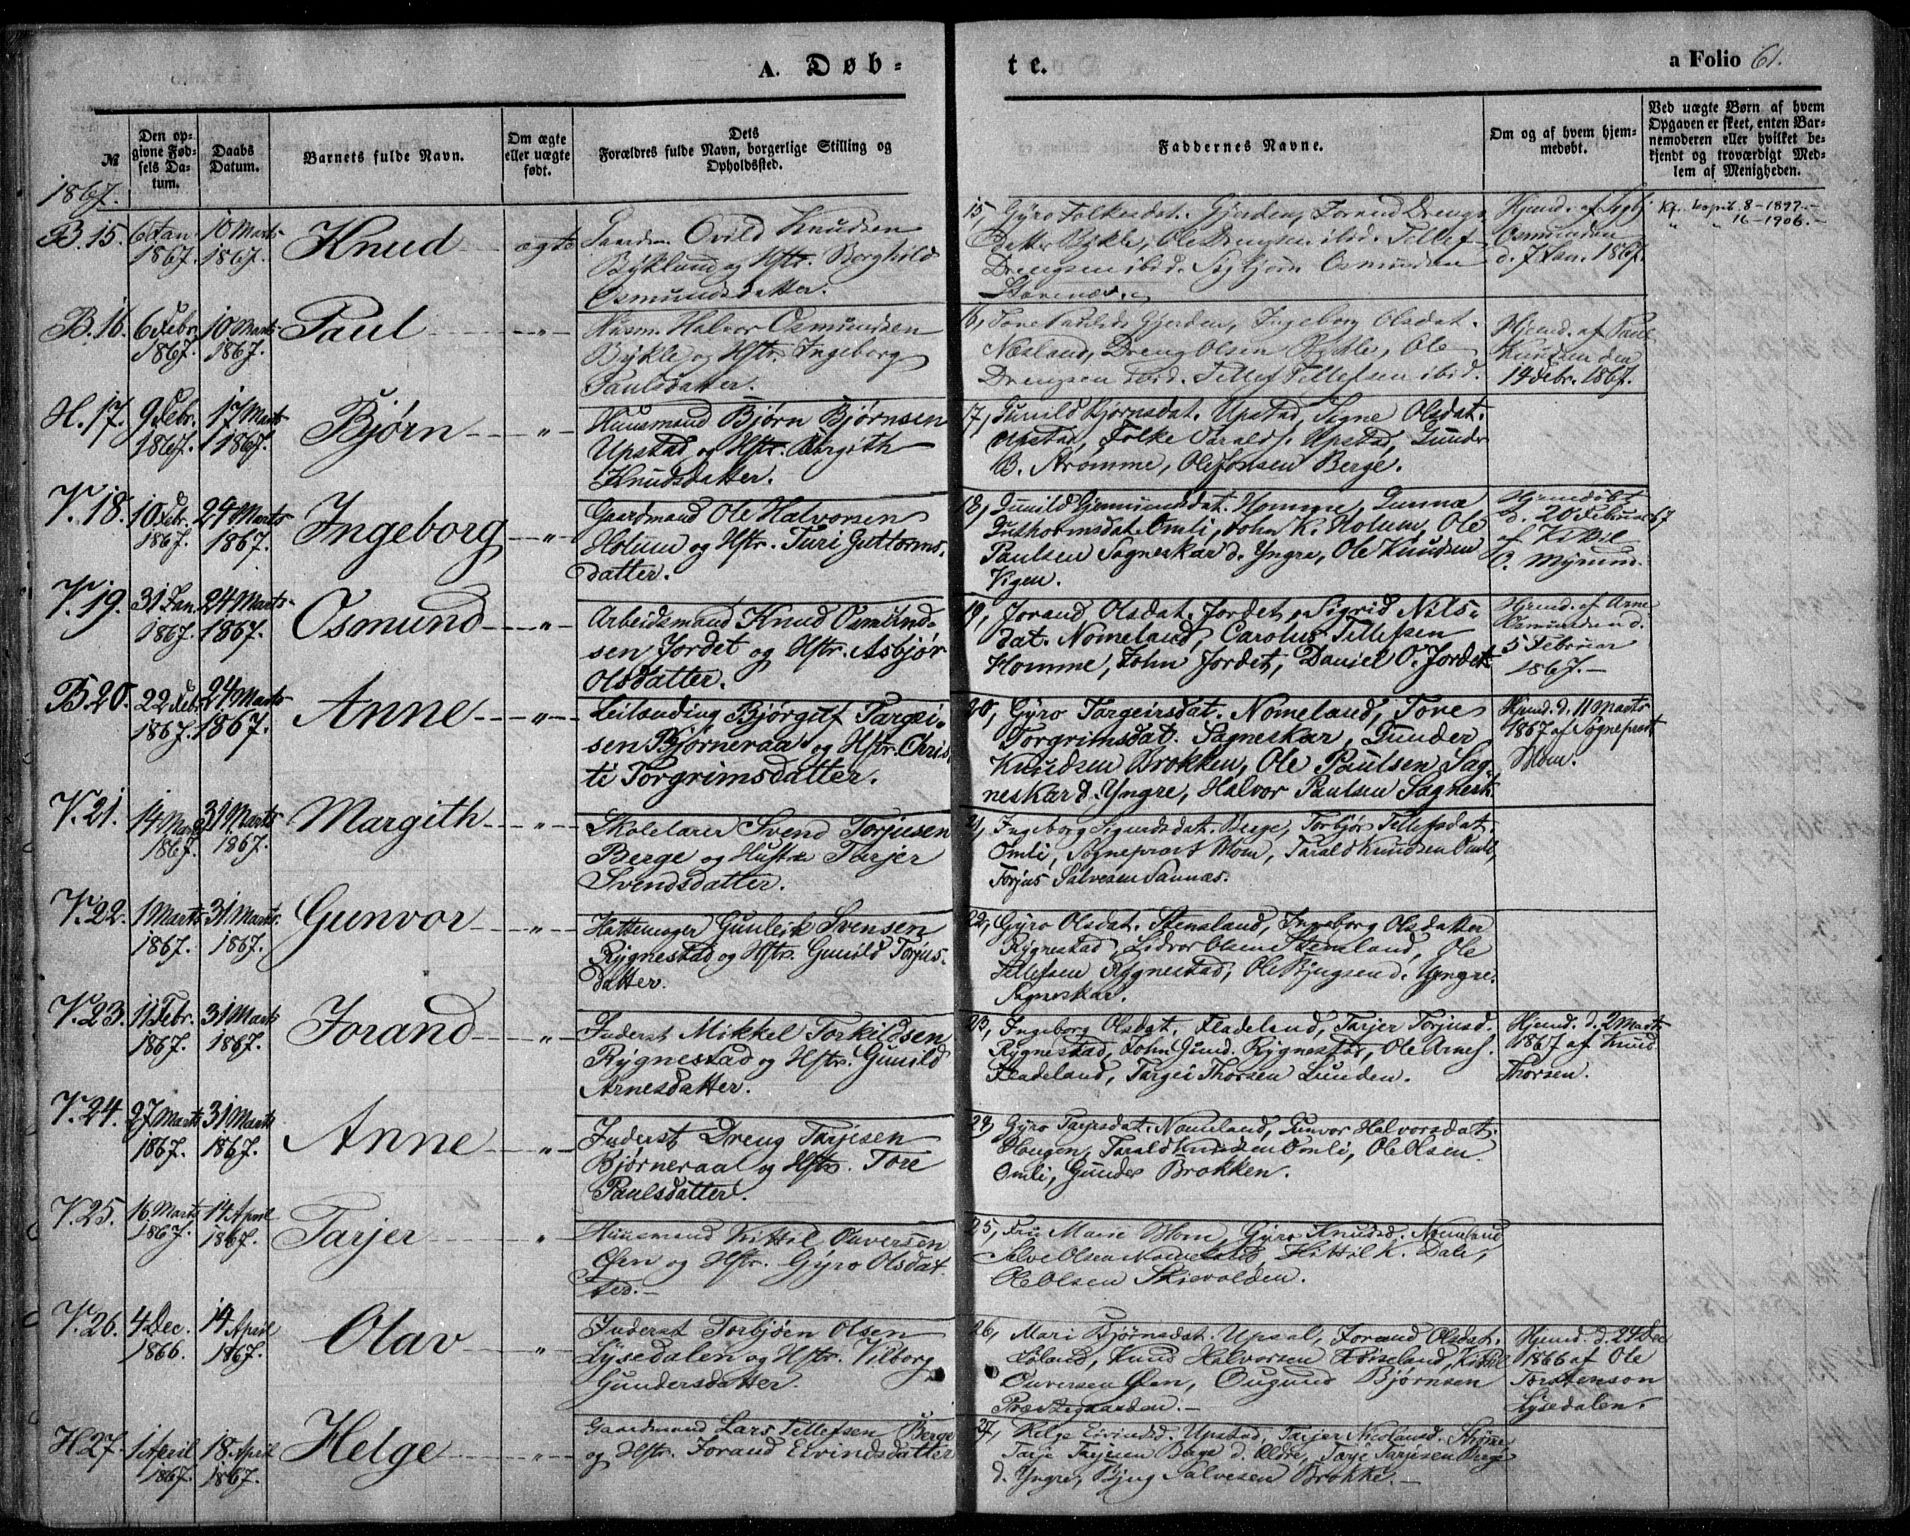 A. Døb-
te.
a Folio 61.
№
Den op-
givne Fød-
sels Da-
tum.
Daabs
Datum.
Barnets fulde Navn.
Om ægte
eller uægte
født.
Dets
Forældres fulde Navn, borgerlige Stilling og
Opholdssted.
Faddernes Navne.
Om og af hvem hjem-
medøbt.
Ved uægte Børn af hvem
Opgaven er skeet, enten Bar-
nemoderen eller hvilket be-
kjendt og troværdigt Med-
lem af Menigheden.
1867.
B. 15.
6 Jan.
1867.
10 Marts
1867.
Knud
ægte
Ovild Knudsen
Bykland og Hstr. Borghold
Osmundsdatter.
15, Gyro Folkesdat. Gjerden, Jorand Drengs
Datter Bykle, Ole Drengsen ibid. Tellef
Drengsen ibid. Sigbjørn Osmundsen
Hjemd. af Sigbj.
Osmundsen
d. 7 Jan. 1867.
8 - 1897.
16 - 1906.
B. 16.
6 Febr.
1867.
10 Marts
1867.
Paul
"
Husm. Halvor Osmundsen
Bykle og Hstr. Ingeborg
Paulsdatter.
16, Tone Paulsd. Gjerden, Ingeborg Olsdat.
Næsland, Dreng Olsen Bykle, Ole
Drengsen ibid. Tellef Tellefsen ibid.
Hjemd. af Paul
Knudsen den
14 Febr. 1867.
H. 17.
9 Febr.
1867.
17 Marts
1867.
Bjørn
"
Huusmand Bjørn Bjørnsen
Upstad og Hstr. Birgith
Knudsdatter.
17, Gunild Bjørnsdat. Upstad, Signe Olsdat.
Upstad, Folke Taralds. Upstad, Gunder
B. Strømme, Ole Jonsen Berge.
V. 18.
10 Febr.
1867.
24 Marts
1867.
Ingeborg
"
Gaardmand Ole Halvorsen
Holum og Hstr. Turi Guttorms-
datter.
18, Gunild Gjermundsdat. Homme, Gunna
Guthormsdat. Omli, John K. Holum, Ole
Paulsen Sagneskar d. Yngre, Ole Knudsen
Vigen.
Hjemdøbt
d. 20 Februar 67
af
O. Myrund.
V. 19.
31 Jan.
1867.
24 Marts
1867.
Osmund
"
Arbeidsmand Knud Osmund-
sen Jordet og Hstr. Asbjør
Olsdatter.
19, Jorand Olsdat. Jordet, Sigrid Nils-
dat. Nomeland, Carolus Tellefsen
Homme, John Jordet, Daniel O. Jordet.
Hjemd. af Arne
Osmundsen d.
5 Februar
1867.
B. 20.
22 Feb.
1867.
24 Marts
1867.
Anne
"
Leilending Bjørgulf Targei-
sen Bjørneraa og Hstr. Chris-
ti Torgrimsdatter.
20, Gyro Targeirsdat. Nomeland, Tone
Torgrimsdat. Sagneskar, Gunder
Knudsen Brokken, Ole Paulsen Sag-
neskar d. Yngre, Halvor Paulsen Sagnesk.
Hjemd. d. 11 Marts
1867 af Sogneprest
Blom.
V. 21.
14 Marts
1867.
31 Marts
1867.
Margith
"
Skolelærer Svend Torjusen
Berge og Hustru Tarjer
Svendsdatter.
21, Ingeborg Sigurdsdat. Berge, Torbjør Tellefsdat.
Omli, Sogneprest Blom, Tarald Knudsen Omli,
Torjus Salvesen Sannæs.
V. 22.
1 Marts
1867.
31 Marts
1867.
Gunvor
"
Hattemager Gunleik Svensen
Rygnestad og Hstr. Gunild Torjus-
datter.
22, Gyro Olsdat. Stensland, Ingeborg Olsdatter
Rygnestad, Lidvor Olsen Stensland, Ole
Tellefsen Rygnestad, Ole Bjugsen d. Yngre
Sagneskar.
V. 23.
11 Febr.
1867.
31 Marts
1867.
Jorand
"
Inderst Mikkel Torkildsen
Rygnestad og Hstr. Gunild
Arnesdatter.
23, Ingeborg Olsdat. Fladeland, Tarjer Torjusd.
Rygnestad, John Gund. Rygnestad, Ole Arnes.
Fladeland, Targei Thorsen Lunden.
Hjemd. d. 2 Marts
1867 af Knud
Thorsen.
V. 24.
27 Marts
1867.
31 Marts
1867.
Anne
"
Inderst Dreng Tarjesen
Bjørneraa og Hstr. Tore
Paulsdatter.
24, Gyro Tarjesdat. Nomeland, Gunvor Halvorsdat.
Hougen, Tarald Knudsen Omli, Ole Olsen
Omli, Gunder Brokken.
V. 25.
16 Marts
1867.
14 April
1867.
Tarjer
"
Huusmand Kittil Ouversen
Øen og Hstr. Gyro Olsdat-
ter.
25, Frk. Marie Blom, Gyro Knudsd. Nomeland
Salve Olsen Nomeland, Kittil K. Dale,
Ole Olsen Skievolden.
V. 26.
4 Dec.
1866.
14 April
1867.
Olav
"
Inderst Torbjørn Olsen
Lysedalen og Hstr. Vilborg
Gundersdatter.
26, Mari Bjørnsdat. Upsal, Jorand Olsdat.
Løland, Knud Halvorsen Kittil
Ouversen Øen, Ougund Bjørnsen
Præstegaarden.
Hjemd. d. 24 Dec
1866 af Ole
Torstenson
Lysedalen.
H. 27.
1 April
1867.
18 April
1867.
Helge
"
Gaardmand Lars Tellefsen Berge
og Hstr. Jorand Eivindsdatter
27, Helge Eivindsd. Upstad, Tarjer Nicolausd.
Tarje Tarjesen Berge d. Ældre, Tarje Tarjesen Berge
d. Yngre, Bjug Salvesen Brokke.